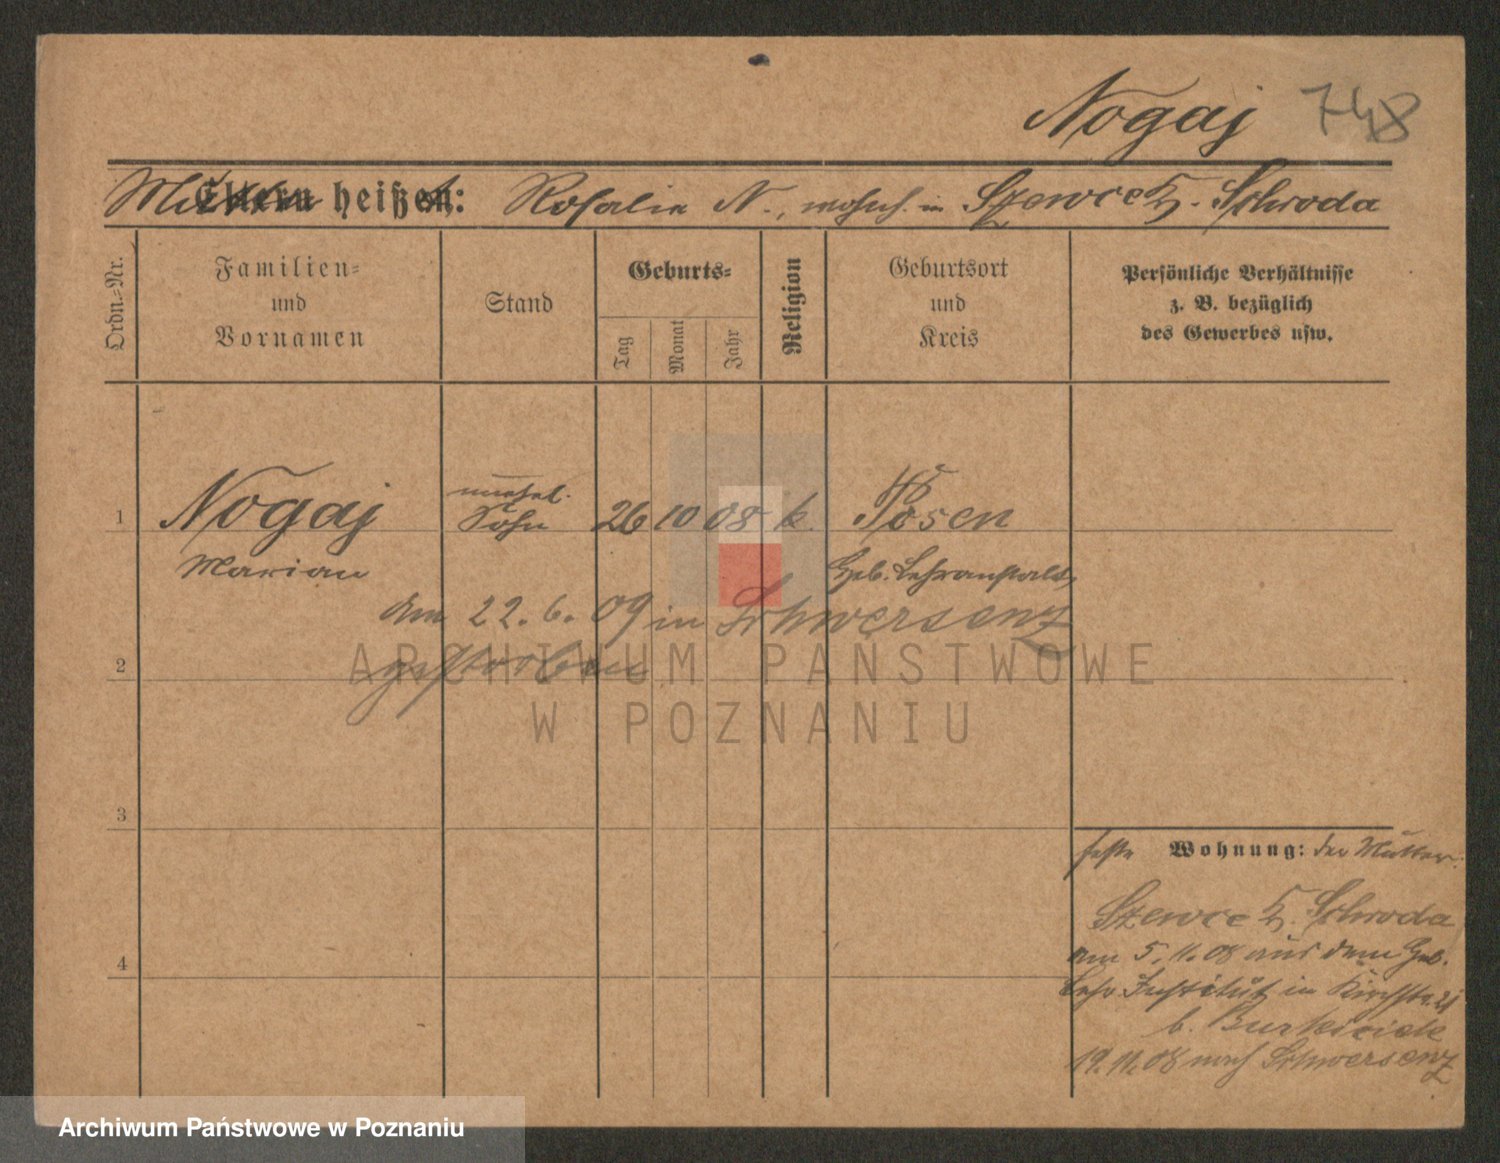 Nogaj 748
Mutter heißt: Rosalie N., wohnh. in Szewce Kr. Schroda
Ordn.-Nr.
Familien-
und
Vornamen
Stand
Geburts-
Tag
Monat
Jahr
Religion
Geburtsort
und
Kreis
Persönliche Verhältnisse
z. B. bezüglich
des Gewerbes usw.
1 Nogaj unehel. Sohn 26 10 08 k. Posen
Marian Geb. Lehranstalt
am 22.6.09 in Schwersenz
2 gestorben
3
feste Wohnung: der Mutter:
Szewce Kr. Schroda
4 am 5.11.08 aus dem Geb.
Lehr Institut in Kirchstr. 21
b.
19.11.08 nach Schwersenz
ARCHIWUM PAŃSTWOWE
W POZNANIU
Archiwum Państwowe w Poznaniu